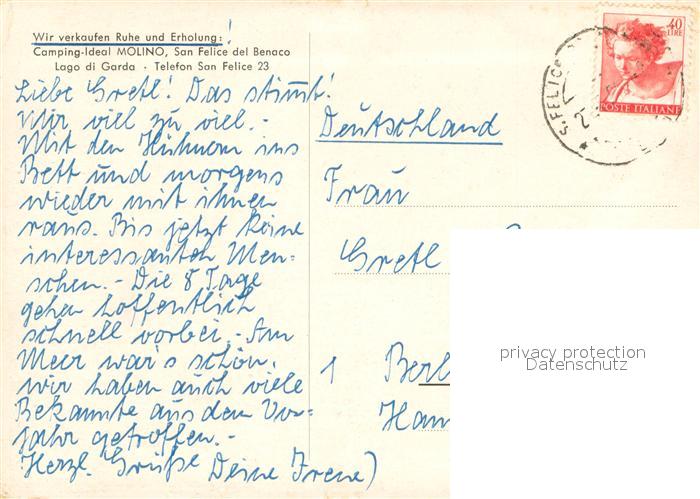 Wir verkaufen Ruhe und Erholung: !
Camping-Ideal MOLINO, San Felice del Benaco
Lago di Garda · Telefon San Felice 23
Liebe Gretl! Das stimmt!
Mir viel zu viel. -
Mit den Hühnern ins
Bett und morgens
wieder mit ihnen
raus. Bis jetzt keine
interessanten Men-
schen. - Die 8 Tage
gehen hoffentlich
schnell vorbei. - Am
Meer war's schön,
wir haben auch viele
Bekannte aus dem Vor-
jahr getroffen. -
Herzl. Grüße Deine Irene)
40
LIRE
POSTE ITALIANE
S. FELICE
Deutschland
Frau
Gretl
1 Berl
Ham
privacy protection
Datenschutz